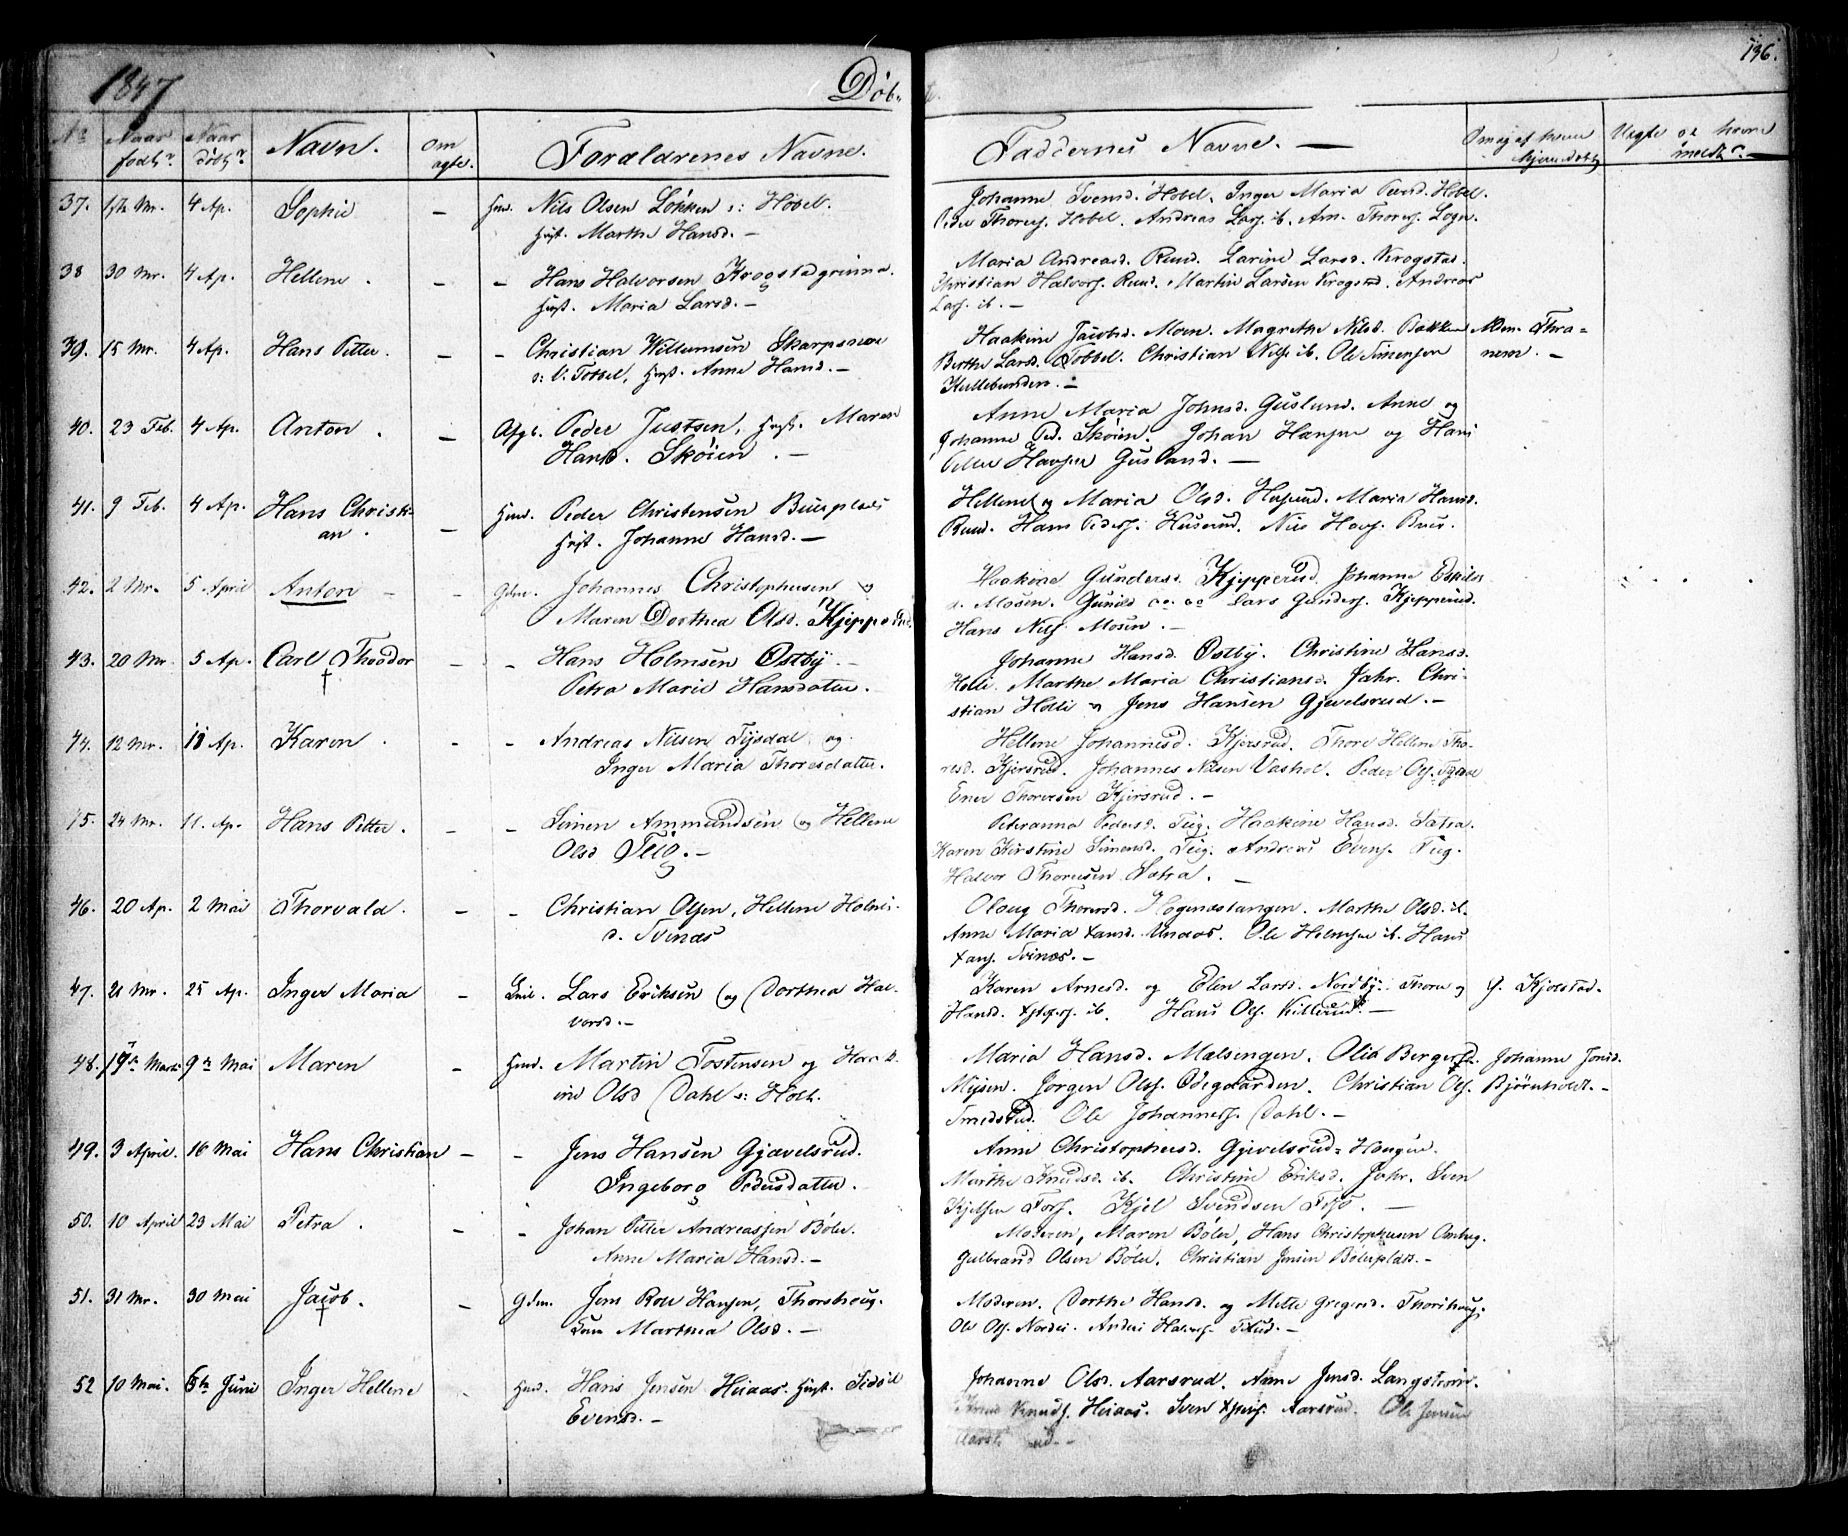 1847 Døb- te. 196.
No Naar født? Naar døbt? Navn. Om ægte. Forældrenes Navne. Faddernes Navne.
37. 4 Ap. Sophie – Hmd. Nils Olsen Løkken s: Hobøl.
Hust. Marthe Hansd. –
Johanne Svensd. Hobøl. Inger Maria Pedersd. Hobøl.
Peder Thoresf. Hobøl. Andreas Larsf. ib. Arn. Thoresf.
38 30 Mr. 4 Ap. Hellene. – – Hans Halvorsen Krogstadgrinna.
Hust. Maria Larsd. –
Maria Andreasd. Ruud. Larine Larsd. Krogstad.
Christian Halvorsf. Ruud. Martin Larsen Krogstad. Andreas
Larsf. ib. –
39. 15 Mr. 4 Ap. Hans Petter. – – Christian Willumsen Skarpsnoe
s: U: Tobbel. Hust. Anne Hansd. –
Haakine Jacobsd. Moen. Magrethe Nilsd. Bakken
Berthe Larsd. Tobbel. Christian Nilsf. ib. Ole Simensen
Kullebunden. –
40. 23 Feb. 4 Ap. Anton. – Afgb. Peder Justsen, Hust. Maren
Hansd. Skøien. –
Anne Maria Johnsd. Guslund. Anne og
Johanne Ped. Skøien. Johan Hansen og Hans
Petter Hansen Guslund. –
41. 9 Feb. 4 Ap. Hans Christi-
an. – Hmd. Peder Christensen Buerplads
Hust. Johanne Hansd. –
Hellene og Maria Olsd. Maria Hansd.
Ruud. Hans Pedersf. Huserud. Nils Hansf. Buer.
42. 2 Mr. 5 April Anton – – Gdm. Johannes Christophersen og
Maren Dorthea Olsd. Kjepperud.
Haakine Gundersd. Kjepperud. Johanne Eskils-
d. Mosen. Gunild Lars Gundersf. Kjepperud.
Hans Nilsf. Mosen. –
43. 20 Mr. 5 Ap. Carl Theodor † – – Hans Holmsen Østby. –
Petra Marie Hansdatter.
Johanne Hansd. Østby. Christine Hansd.
Holli. Marthe Maria Christiansd. Jahr. Chri-
stian Holli og Jens Hansen Gjevelsrud. –
44. 12 Mr. 11 Ap. Karen. – – Andreas Nilsen Tysdal og
Inger Maria Thoresdatter.
Hellene Johannesd. Kjersrud. Thore Hellene Tho-
resd. Kjersrud. Johannes Nilsen Vashol. Peder Olsf.
Ener Thoresen Kjersrud. –
45. 24 Mr. 11. Ap. Hans Petter. – – Simen Ammundsen og Hellene
Olsd Teig. –
Peteranna Pedersd. Teig. Haakine Hansd. Sætra.
Karen Kirstine Simensd. Teig. Andreas Evensf. Teig.
Halvor Thoresen Sætra. –
46. 20 Ap. 2 Mai Thorvald. – – Christian Olsen, Hellene Holms-
d. Svinæs
Thoresd. Hogenæstangen. Marthe Olsd. ib.
Anne Maria Ole Holmsen ib. Hans
Svinæs. –
47. 21 Mr. 25 Ap. Inger Maria – Lars Eriksen og Dorthea Hal-
vorsd. –
Karen Arnesd. og Elen Larsd. Nordby. Thora og
Hansd. ib. Hans Olsf. Killerud. –
48. 19de Marts 9de Mai Maren – Hmd. Martin Tostensen og Haak-
ine Olsd Dahl s: Holt.
Maria Hansd. Mælsengen. Olia Bergersd. Johanne Jonsd.
Mysen. Jørgen Olsf. Ødegaarden. Christian Olsf. Bjørnholdt. –
Smedsrud. Ole Johannesf. Dahl. –
49. 3 April. 16 Mai Hans Christian – – Jens Hansen Gjævelsrud.
Ingeborg Pedersdatter.
Anne Christophersd. Gjevelsrud-Haugen.
Marthe Knudsd. ib. Christine Eriksd. Jahr. Sven
Kjelsen Foss. Kjel Svendsen Foss. –
50. 10 April 23 Mai Petra. – – Johan Petter Andreassen Bøler.
Anne Maria Hansd. –
Moderen, Maren Bøler, Hans Christophersen
Gulbrand Olsen Bøler. Christian Jensen Bølerplads. –
51. 31 Mr. 30 Mai Jacob. † – Gdm. Jens Roer Hansen, Thorshoug.
Marthea Olsd. –
Moderen. Dorthe Hansd. og Mette Gregersd. Thorshoug.
Ole Olsf. Nordre. Anders Halvorsf.
52 10 Mai. 6te Juni Inger Hellene Hmd. Hans Jensen Heiaas. Hust. Sidsel
Evensd. –
Johanne Olsd. Aarsrud. Anne Jensd. Langstrøm.
Knudsf. Heiaas. Sven Aarsrud. Ole Jensen